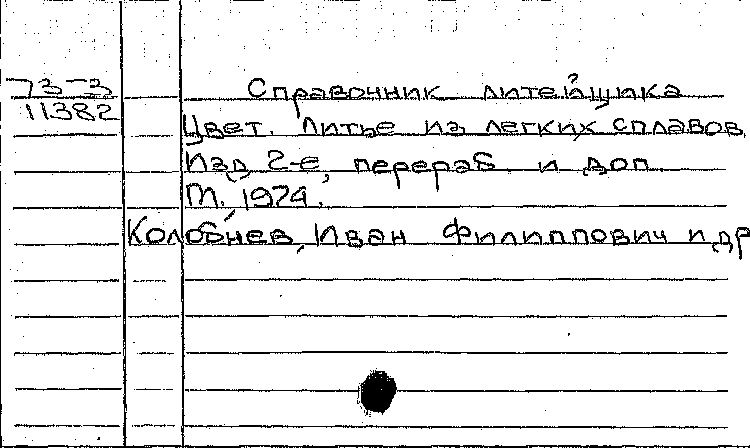 73-3
11382
Справочник литейщика
Цвет. литье из легких сплавов.
Изд. 2-е, перераб. и доп.
М., 1974.
Колобнев, Иван Филиппович и др